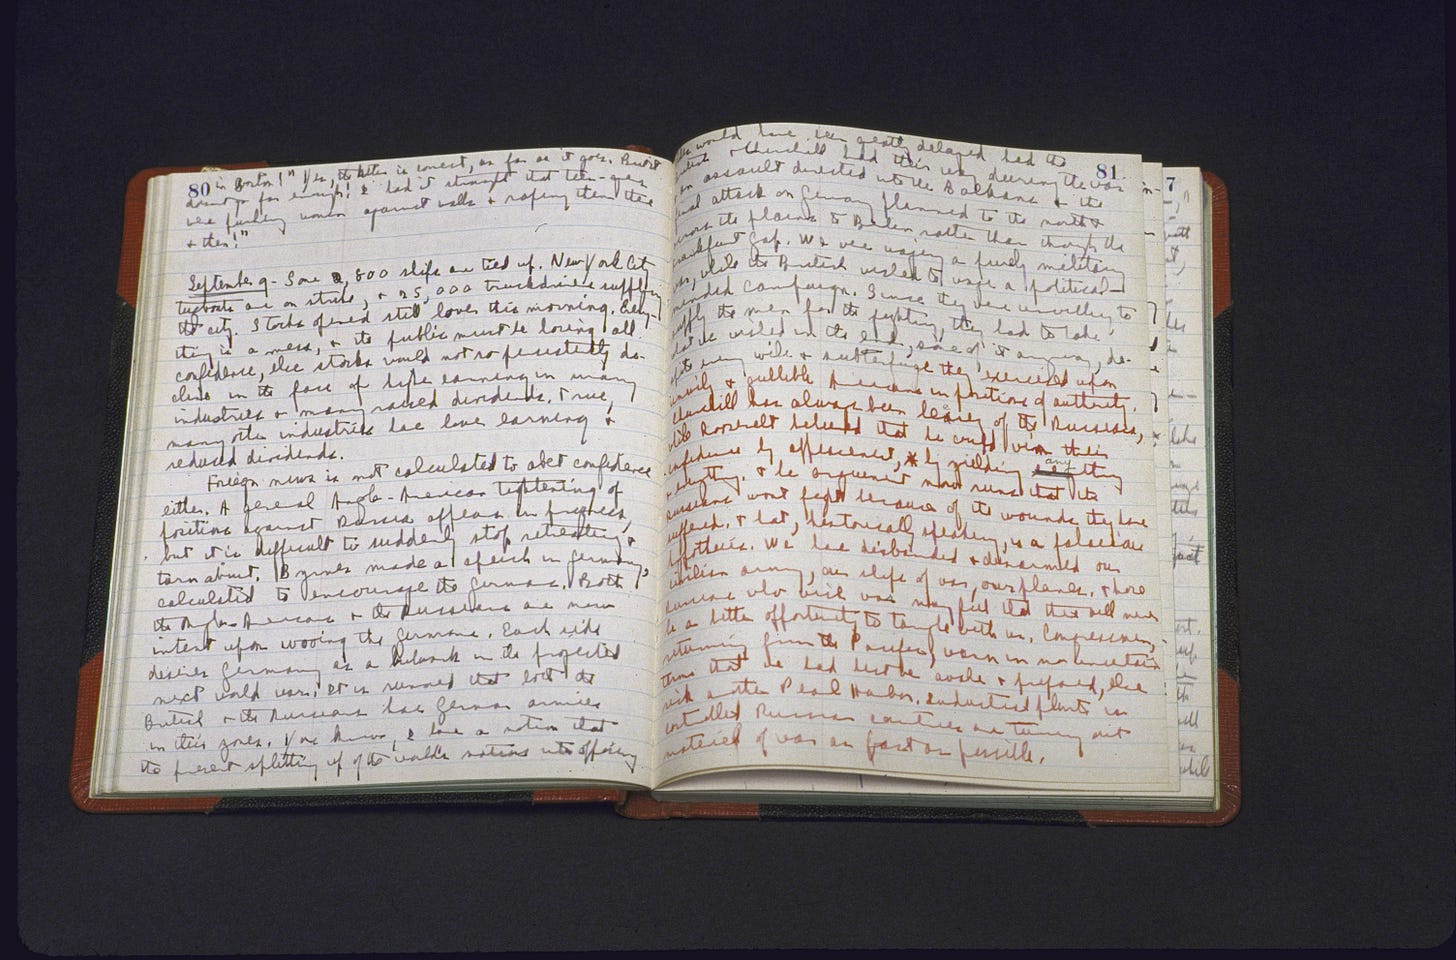 80
in Boston!" Yes, the letter is correct, as far as it goes. But it
doesn't go far enough! I had it straight that teen-agers
were pushing women against walls & raping them then
& there!"
September 9 - Some 2,800 ships are tied up. New York City
tugboats are on strike, & 25,000 truckdrivers supplying
the city. Stocks opened still lower this morning. Every-
thing is a mess, & the public must be losing all
confidence, else stocks would not so persistently de-
cline in the face of high earning in many
industries & many raised dividends. True,
many other industries have low earning &
reduced dividends.
Foreign news is not calculated to abet confidence
either. A general Anglo-American tightening of
position against Russia appears in progress,
but it is difficult to suddenly stop retreating &
turn about. Byrnes made a speech in Germany,
calculated to encourage the Germans. Both
the Anglo-Americans & the Russians are now
intent upon wooing the Germans. Each side
desires Germany as a bulwark in the projected
next world war. It is rumored that both the
British & the Russians have German armies
in their zones. You know, I have a notion that
the present splitting up of the world's nations into opposing
81
would have been greatly delayed had the
& Churchill had their way, decreeing the war
an assault directed into the Balkans & the
final attack on Germany planned to the north &
across the plains to Berlin rather than through the
Gap. We were waging a purely military
war, while the British wished to wage a political-
minded campaign. Since they were unwilling to
supply the men for the fighting, they had to take
what we wished in the end, some of it anyway, de-
spite every wile & subterfuge they exercised upon
& gullible Americans in positions of authority.
Churchill has always been leary of the Russians,
while Roosevelt believed that he could win their
confidence by appeasement, by yielding anything
& everything. & the argument now runs that the
Russians won't fight because of the wounds they have
suffered. & that, historically speaking, is a fallacious
hypothesis. We have disbanded & disarmed our
civilian army, our ships of war, our planes, & those
Russians who wish war may feel that there will never
be a better opportunity to tangle with us. Congressmen,
returning from the Pacific, warn in no uncertain
terms that we had best be awake & prepared, else
risk another Pearl Harbor. Industrial plants in
controlled Russian countries are turning out
materiel of war as fast as possible.
7